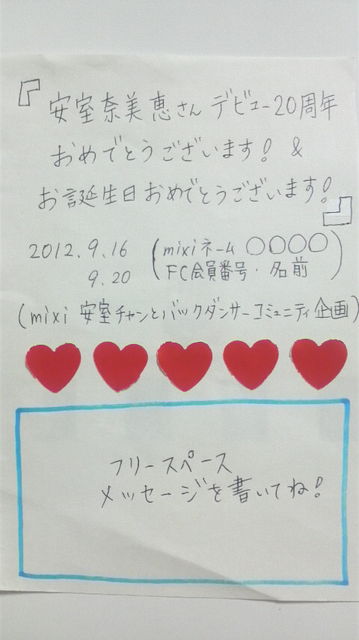 『安室奈美恵さん デビュー20周年
おめでとうございます! &
お誕生日おめでとうございます!』
2012.9.16 (mixiネーム ○○○○
9.20 FC会員番号・名前)
(mixi 安室チャンとバックダンサーコミュニティ企画)
フリースペース
メッセージを書いてね!